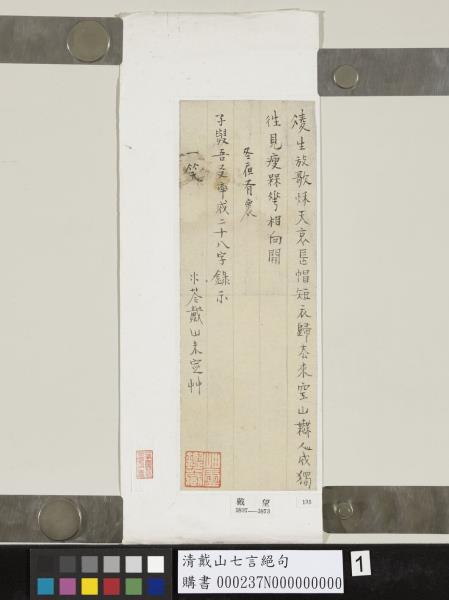 生放歌天哀長帽短衣歸去來空山無人成獨
往見瘦槑花相向開
冬夜有褱
子吾友率成二十八字錄示
一笑
戴山未定艸
戴 望
1837—1873
135
清戴山七言絕句
購書 000237N000000000
1